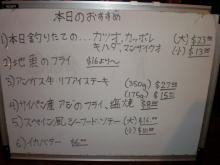 本日のおすすめ
1)本日釣りたての… カツオ、カッポレ (大) $23.00
キハダ、マンサイクオ (小) $13.00
2) 地魚のフライ $16より〜
3) アンガス牛 リブアイステーキ (350g) $27.00
(175g) $15.00
4) サイパン産 アジのフライ、塩焼 $8.00
5) スペイン風シーフードソテー (大) $16.00
(小)
6) イカバター $6.00